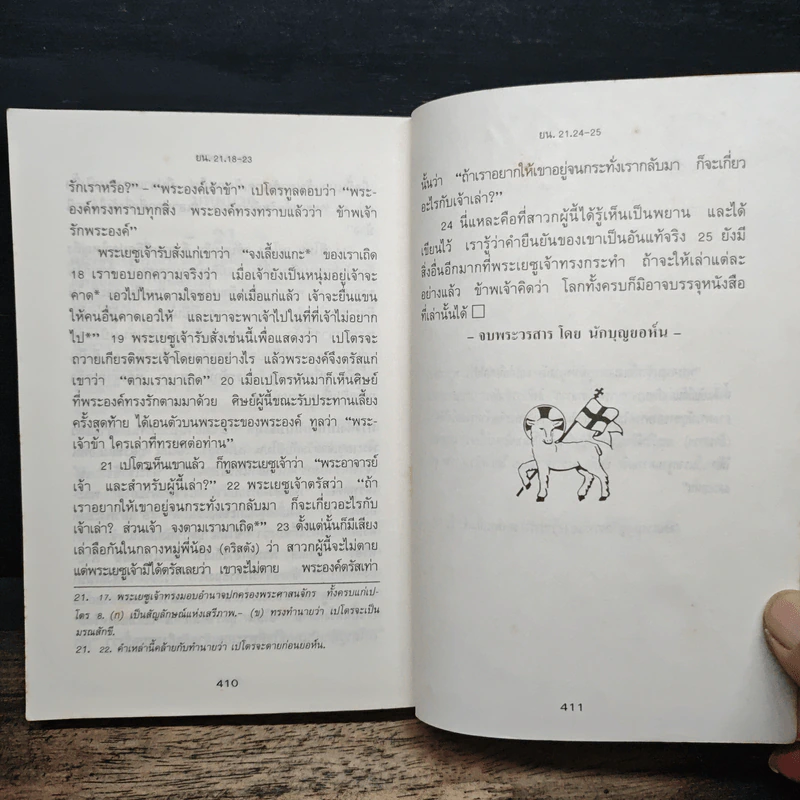 ยน. 21.18-23
รักเราหรือ?” – “พระองค์เจ้าข้า” เปโตรทูลตอบว่า “พระ-
องค์ทรงทราบทุกสิ่ง พระองค์ทรงทราบแล้วว่า ข้าพเจ้า
รักพระองค์”
พระเยซูเจ้ารับสั่งแก่เขาว่า “จงเลี้ยงแกะ* ของเราเถิด
18 เราขอบอกความจริงว่า เมื่อเจ้ายังเป็นหนุ่มอยู่เจ้าจะ
คาด* เอวไปไหนตามใจชอบ แต่เมื่อแก่แล้ว เจ้าจะยื่นแขน
ให้คนอื่นคาดเอวให้ และเขาจะพาเจ้าไปในที่ที่เจ้าไม่อยาก
ไป*” 19 พระเยซูเจ้ารับสั่งเช่นนี้เพื่อแสดงว่า เปโตรจะ
ถวายเกียรติพระเจ้าโดยตายอย่างไร แล้วพระองค์จึงตรัสแก่
เขาว่า “ตามเรามาเถิด” 20 เมื่อเปโตรหันมาก็เห็นศิษย์
ที่พระองค์ทรงรักตามมาด้วย ศิษย์ผู้นี้ขณะรับประทานเลี้ยง
ครั้งสุดท้าย ได้เอนตัวบนพระอุระของพระองค์ ทูลว่า “พระ-
เจ้าข้า ใครเล่าที่ทรยศต่อท่าน”
21 เปโตรเห็นเขาแล้ว ก็ทูลพระเยซูเจ้าว่า “พระอาจารย์
เจ้า และสำหรับผู้นี้เล่า?” 22 พระเยซูเจ้าตรัสว่า “ถ้า
เราอยากให้เขาอยู่จนกระทั่งเรากลับมา ก็จะเกี่ยวอะไรกับ
เจ้าเล่า? ส่วนเจ้า จงตามเรามาเถิด*” 23 ตั้งแต่นั้นก็มีเสียง
เล่าลือกันในกลางหมู่พี่น้อง (คริสตัง) ว่า สาวกผู้นี้จะไม่ตาย
แต่พระเยซูเจ้ามิได้ตรัสเลยว่า เขาจะไม่ตาย พระองค์ตรัสเท่า
21. 17. พระเยซูเจ้าทรงมอบอำนาจปกครองพระศาสนจักร ทั้งครบแก่เป-
โตร 8. (ก) เป็นสัญลักษณ์แห่งเสรีภาพ.– (ข) ทรงทำนายว่า เปโตรจะเป็น
มรณสักขี.
21. 22. คำเหล่านี้คล้ายกับทำนายว่า เปโตรจะตายก่อนยอห์น.
410
ยน. 21.24-25
นั้นว่า “ถ้าเราอยากให้เขาอยู่จนกระทั่งเรากลับมา ก็จะเกี่ยว
อะไรกับเจ้าเล่า?”
24 นี่แหละคือที่สาวกผู้นี้ได้รู้เห็นเป็นพยาน และได้
เขียนไว้ เรารู้ว่าคำยืนยันของเขาเป็นอันแท้จริง 25 ยังมี
สิ่งอื่นอีกมากที่พระเยซูเจ้าทรงกระทำ ถ้าจะให้เล่าแต่ละ
อย่างแล้ว ข้าพเจ้าคิดว่า โลกทั้งครบก็มิอาจบรรจุหนังสือ
ที่เล่านั้นได้ □
– จบพระวรสาร โดย นักบุญยอห์น –
411